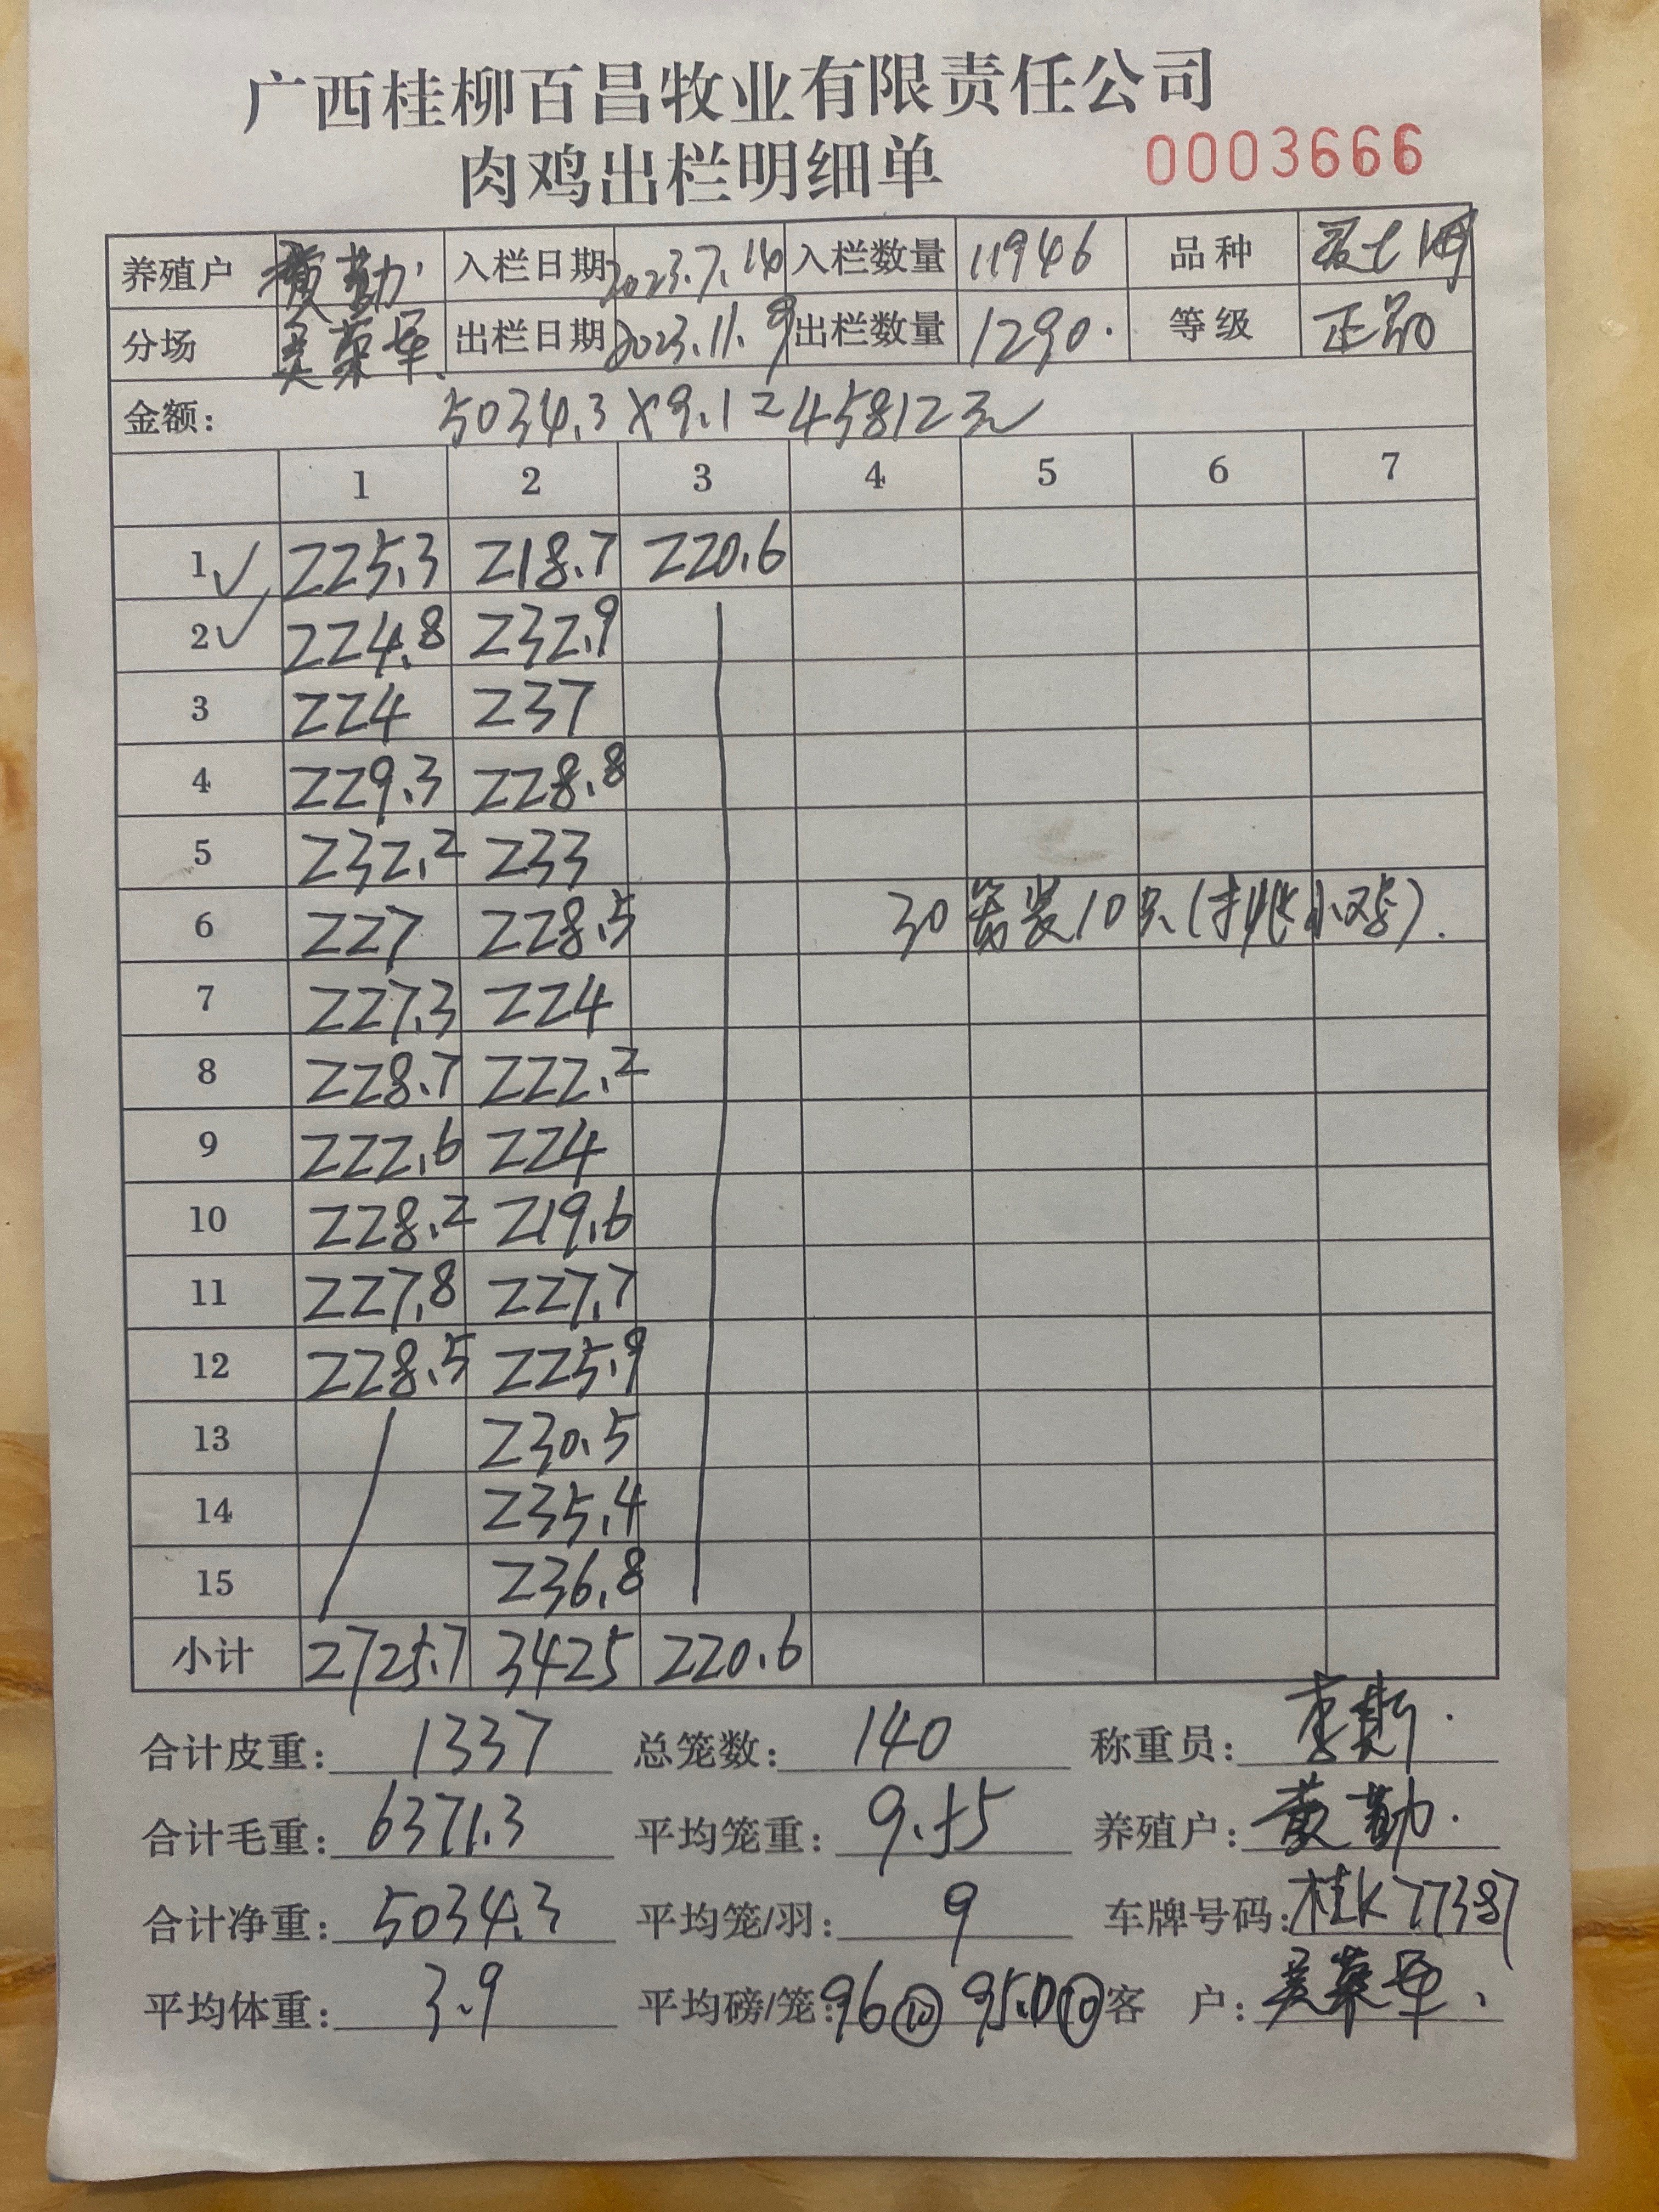 广西桂柳百昌牧业有限责任公司
肉鸡出栏明细单 0003666
养殖户 黄勤 入栏日期 2023.7.14 入栏数量 11946 品种
分场 出栏日期 2023.11.9 出栏数量 1290. 等级 正品
金额: 5034.3×9.1=45812元
1 2 3 4 5 6 7
1✓ 225.3 218.7 220.6
2✓ 224.8 232.9
3 224 237
4 229.3 228.8
5 232.2 233
6 227 228.5 30笼装10只(挑小鸡).
7 227.3 224
8 228.7 222.2
9 222.6 224
10 228.2 219.6
11 227.8 227.7
12 228.5 225.9
13 230.5
14 235.4
15 236.8
小计 2725.7 3425 220.6
合计皮重: 1337 总笼数: 140 称重员:
合计毛重: 6371.3 平均笼重: 9.55 养殖户: 黄勤.
合计净重: 5034.3 平均笼/羽: 9 车牌号码: 桂K77387
平均体重: 3.9 平均磅/笼: 96⑩ 95.0⑩ 客 户: